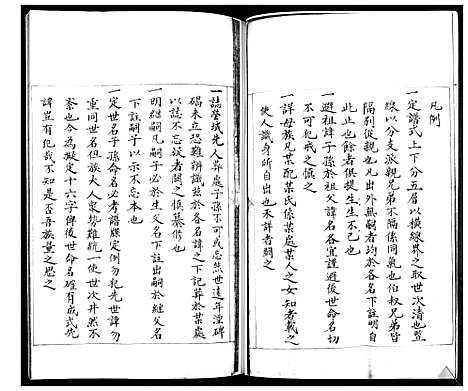 凡例
一定譜式上下分五層以橫線界之取世次清也竪
線以分支派親兄弟不隔係同氣也伯叔兄弟皆
隔別從親也出外無嗣者均於各名下註明自
此止也餘者俱提生生不已也
一避祖諱子孫於祖父諱名各宜謹避後世命名切
不可犯戒之慎之
一詳母族凡某配某氏係某處某人之女知者載之
使人識身所自出也未詳者闕之
一誌塋域先人葬處子孫不可或忘然世遠年湮碑
碣未立恐難辨識茲於各名諱之下記葬於某處
以誌不忘故者闕之慎纂竊也
一明繼嗣凡嗣子必於生父名下註出嗣於繼父名
下註嗣子以示不忘本也
一定世名子孫命名必考譜牒定例勿犯先世諱勿
重同世名但族大人衆勢難統一使世次井然不
紊也今為擬定十六字俾後世命名確有成式先
諱豈有犯哉不知是否吾族量之思之